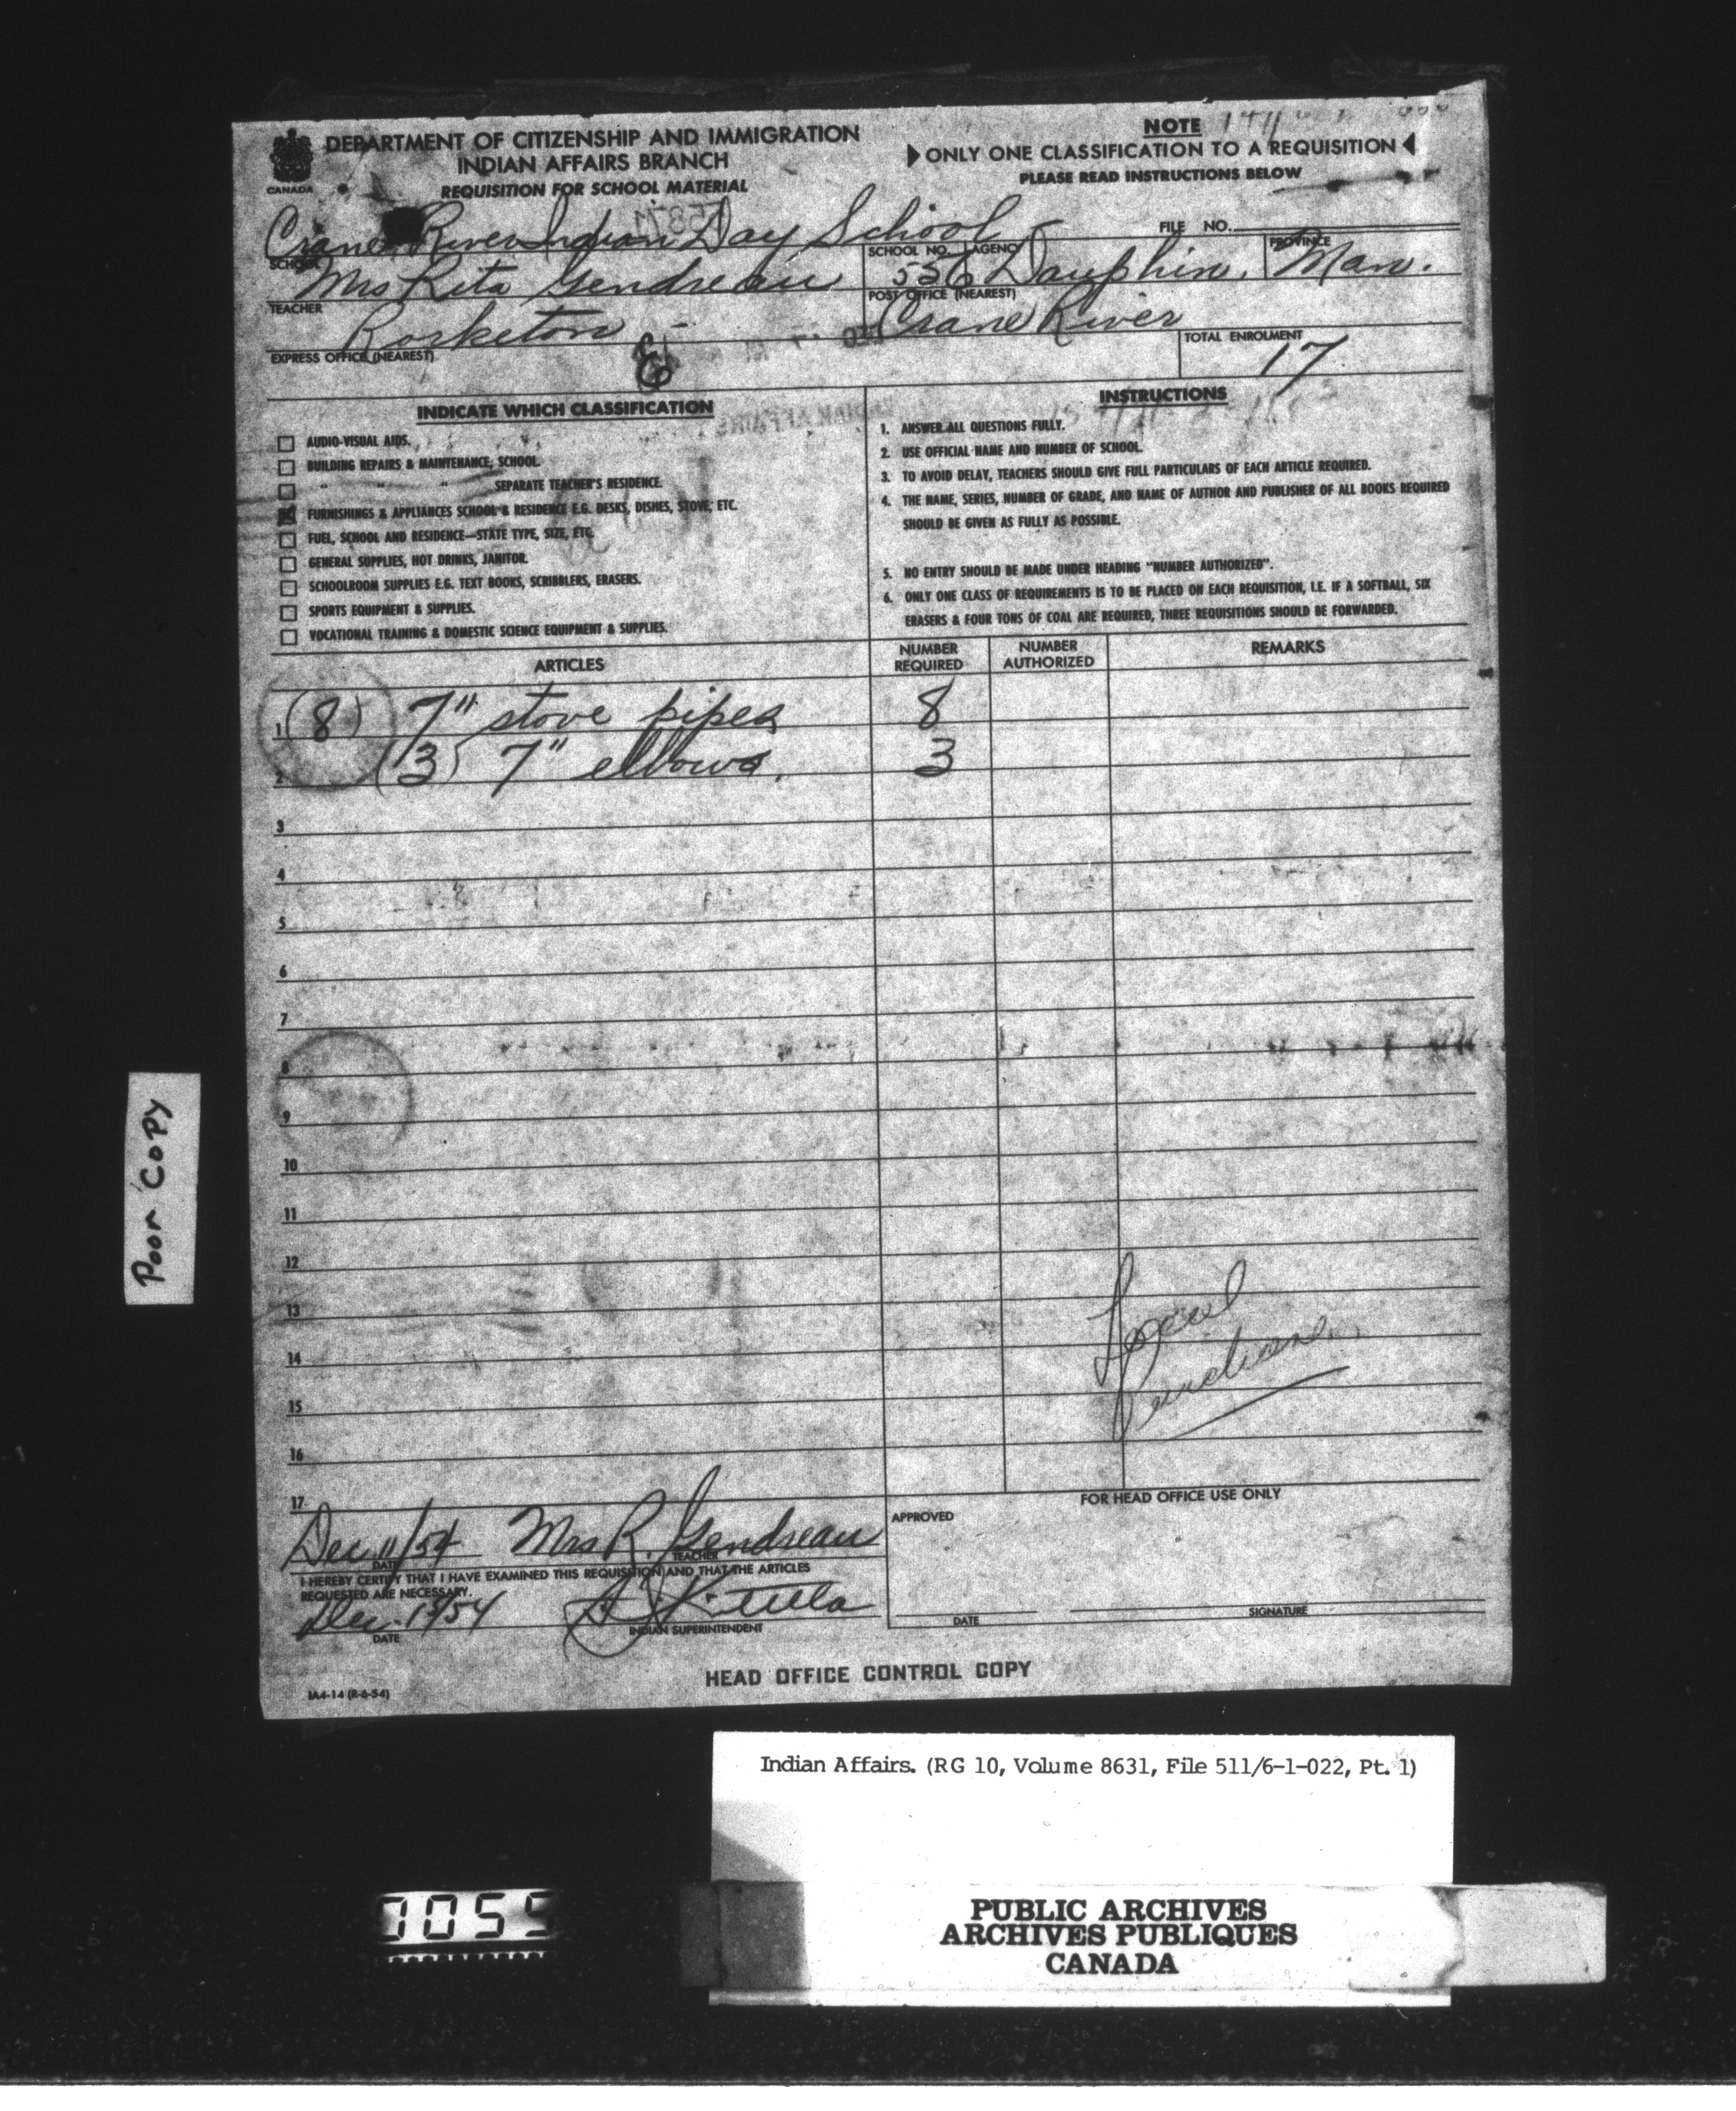 DEPARTMENT OF CITIZENSHIP AND IMMIGRATION
INDIAN AFFAIRS BRANCH
REQUISITION FOR SCHOOL MATERIAL
CANADA
NOTE
ONLY ONE CLASSIFICATION TO A REQUISITION
PLEASE READ INSTRUCTIONS BELOW
Crane River Indian Day School
SCHOOL
FILE NO.
SCHOOL NO. AGENCY PROVINCE
Mrs Rita Gendreau 536 Dauphin, Man.
TEACHER
POST OFFICE (NEAREST)
Rorketon Crane River
EXPRESS OFFICE (NEAREST)
TOTAL ENROLMENT
17
INDICATE WHICH CLASSIFICATION
AUDIO-VISUAL AIDS.
BUILDING REPAIRS & MAINTENANCE, SCHOOL.
" " " SEPARATE TEACHER'S RESIDENCE.
FURNISHINGS & APPLIANCES SCHOOL & RESIDENCE E.G. DESKS, DISHES, STOVE, ETC.
FUEL, SCHOOL AND RESIDENCE—STATE TYPE, SIZE, ETC.
GENERAL SUPPLIES, HOT DRINKS, JANITOR.
SCHOOLROOM SUPPLIES E.G. TEXT BOOKS, SCRIBBLERS, ERASERS.
SPORTS EQUIPMENT & SUPPLIES.
VOCATIONAL TRAINING & DOMESTIC SCIENCE EQUIPMENT & SUPPLIES.
INSTRUCTIONS
1. ANSWER ALL QUESTIONS FULLY.
2. USE OFFICIAL NAME AND NUMBER OF SCHOOL.
3. TO AVOID DELAY, TEACHERS SHOULD GIVE FULL PARTICULARS OF EACH ARTICLE REQUIRED.
4. THE NAME, SERIES, NUMBER OF GRADE, AND NAME OF AUTHOR AND PUBLISHER OF ALL BOOKS REQUIRED
SHOULD BE GIVEN AS FULLY AS POSSIBLE.
5. NO ENTRY SHOULD BE MADE UNDER HEADING "NUMBER AUTHORIZED".
6. ONLY ONE CLASS OF REQUIREMENTS IS TO BE PLACED ON EACH REQUISITION, I.E. IF A SOFTBALL, SIX
ERASERS & FOUR TONS OF COAL ARE REQUIRED, THREE REQUISITIONS SHOULD BE FORWARDED.
ARTICLES NUMBER REQUIRED NUMBER AUTHORIZED REMARKS
1 (8) 7" stove pipes 8
2 (3) 7" elbows. 3
3
4
5
6
7
8
9
10
11
12
13
14
15
16
17
Local
FOR HEAD OFFICE USE ONLY
APPROVED
Dec 11/54 Mrs R. Gendreau
DATE TEACHER
I HEREBY CERTIFY THAT I HAVE EXAMINED THIS REQUISITION AND THAT THE ARTICLES
REQUESTED ARE NECESSARY.
Dec. 15/54
DATE INDIAN SUPERINTENDENT
DATE SIGNATURE
HEAD OFFICE CONTROL COPY
IA4-14 (R-6-54)
Poor Copy
Indian Affairs. (RG 10, Volume 8631, File 511/6-1-022, Pt. 1)
PUBLIC ARCHIVES
ARCHIVES PUBLIQUES
CANADA